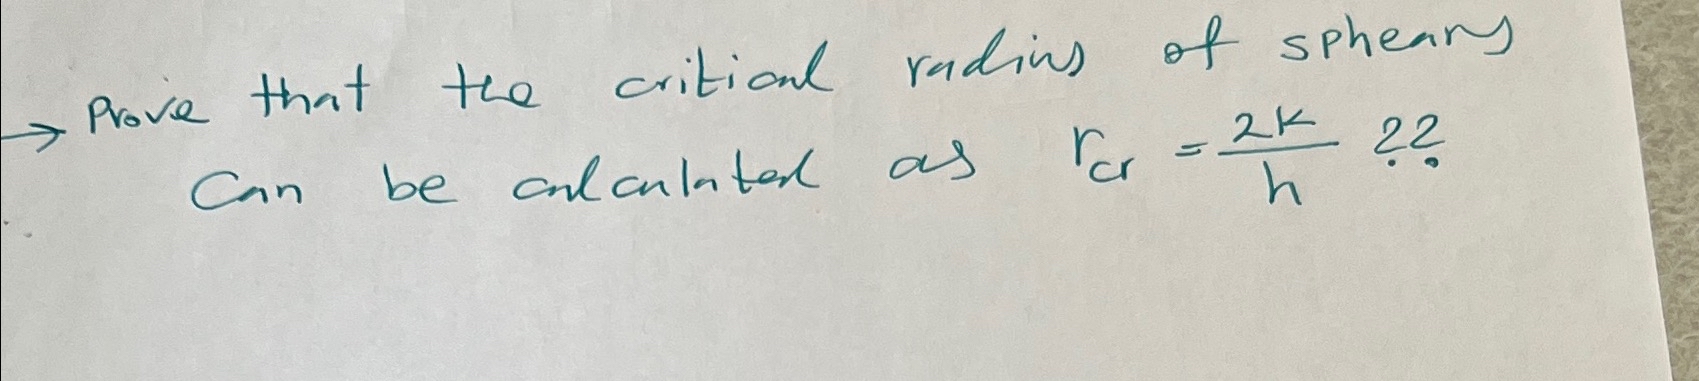 → Prove that the critical radius of spheary
Can be calculated as r_cr = 2K/h ??